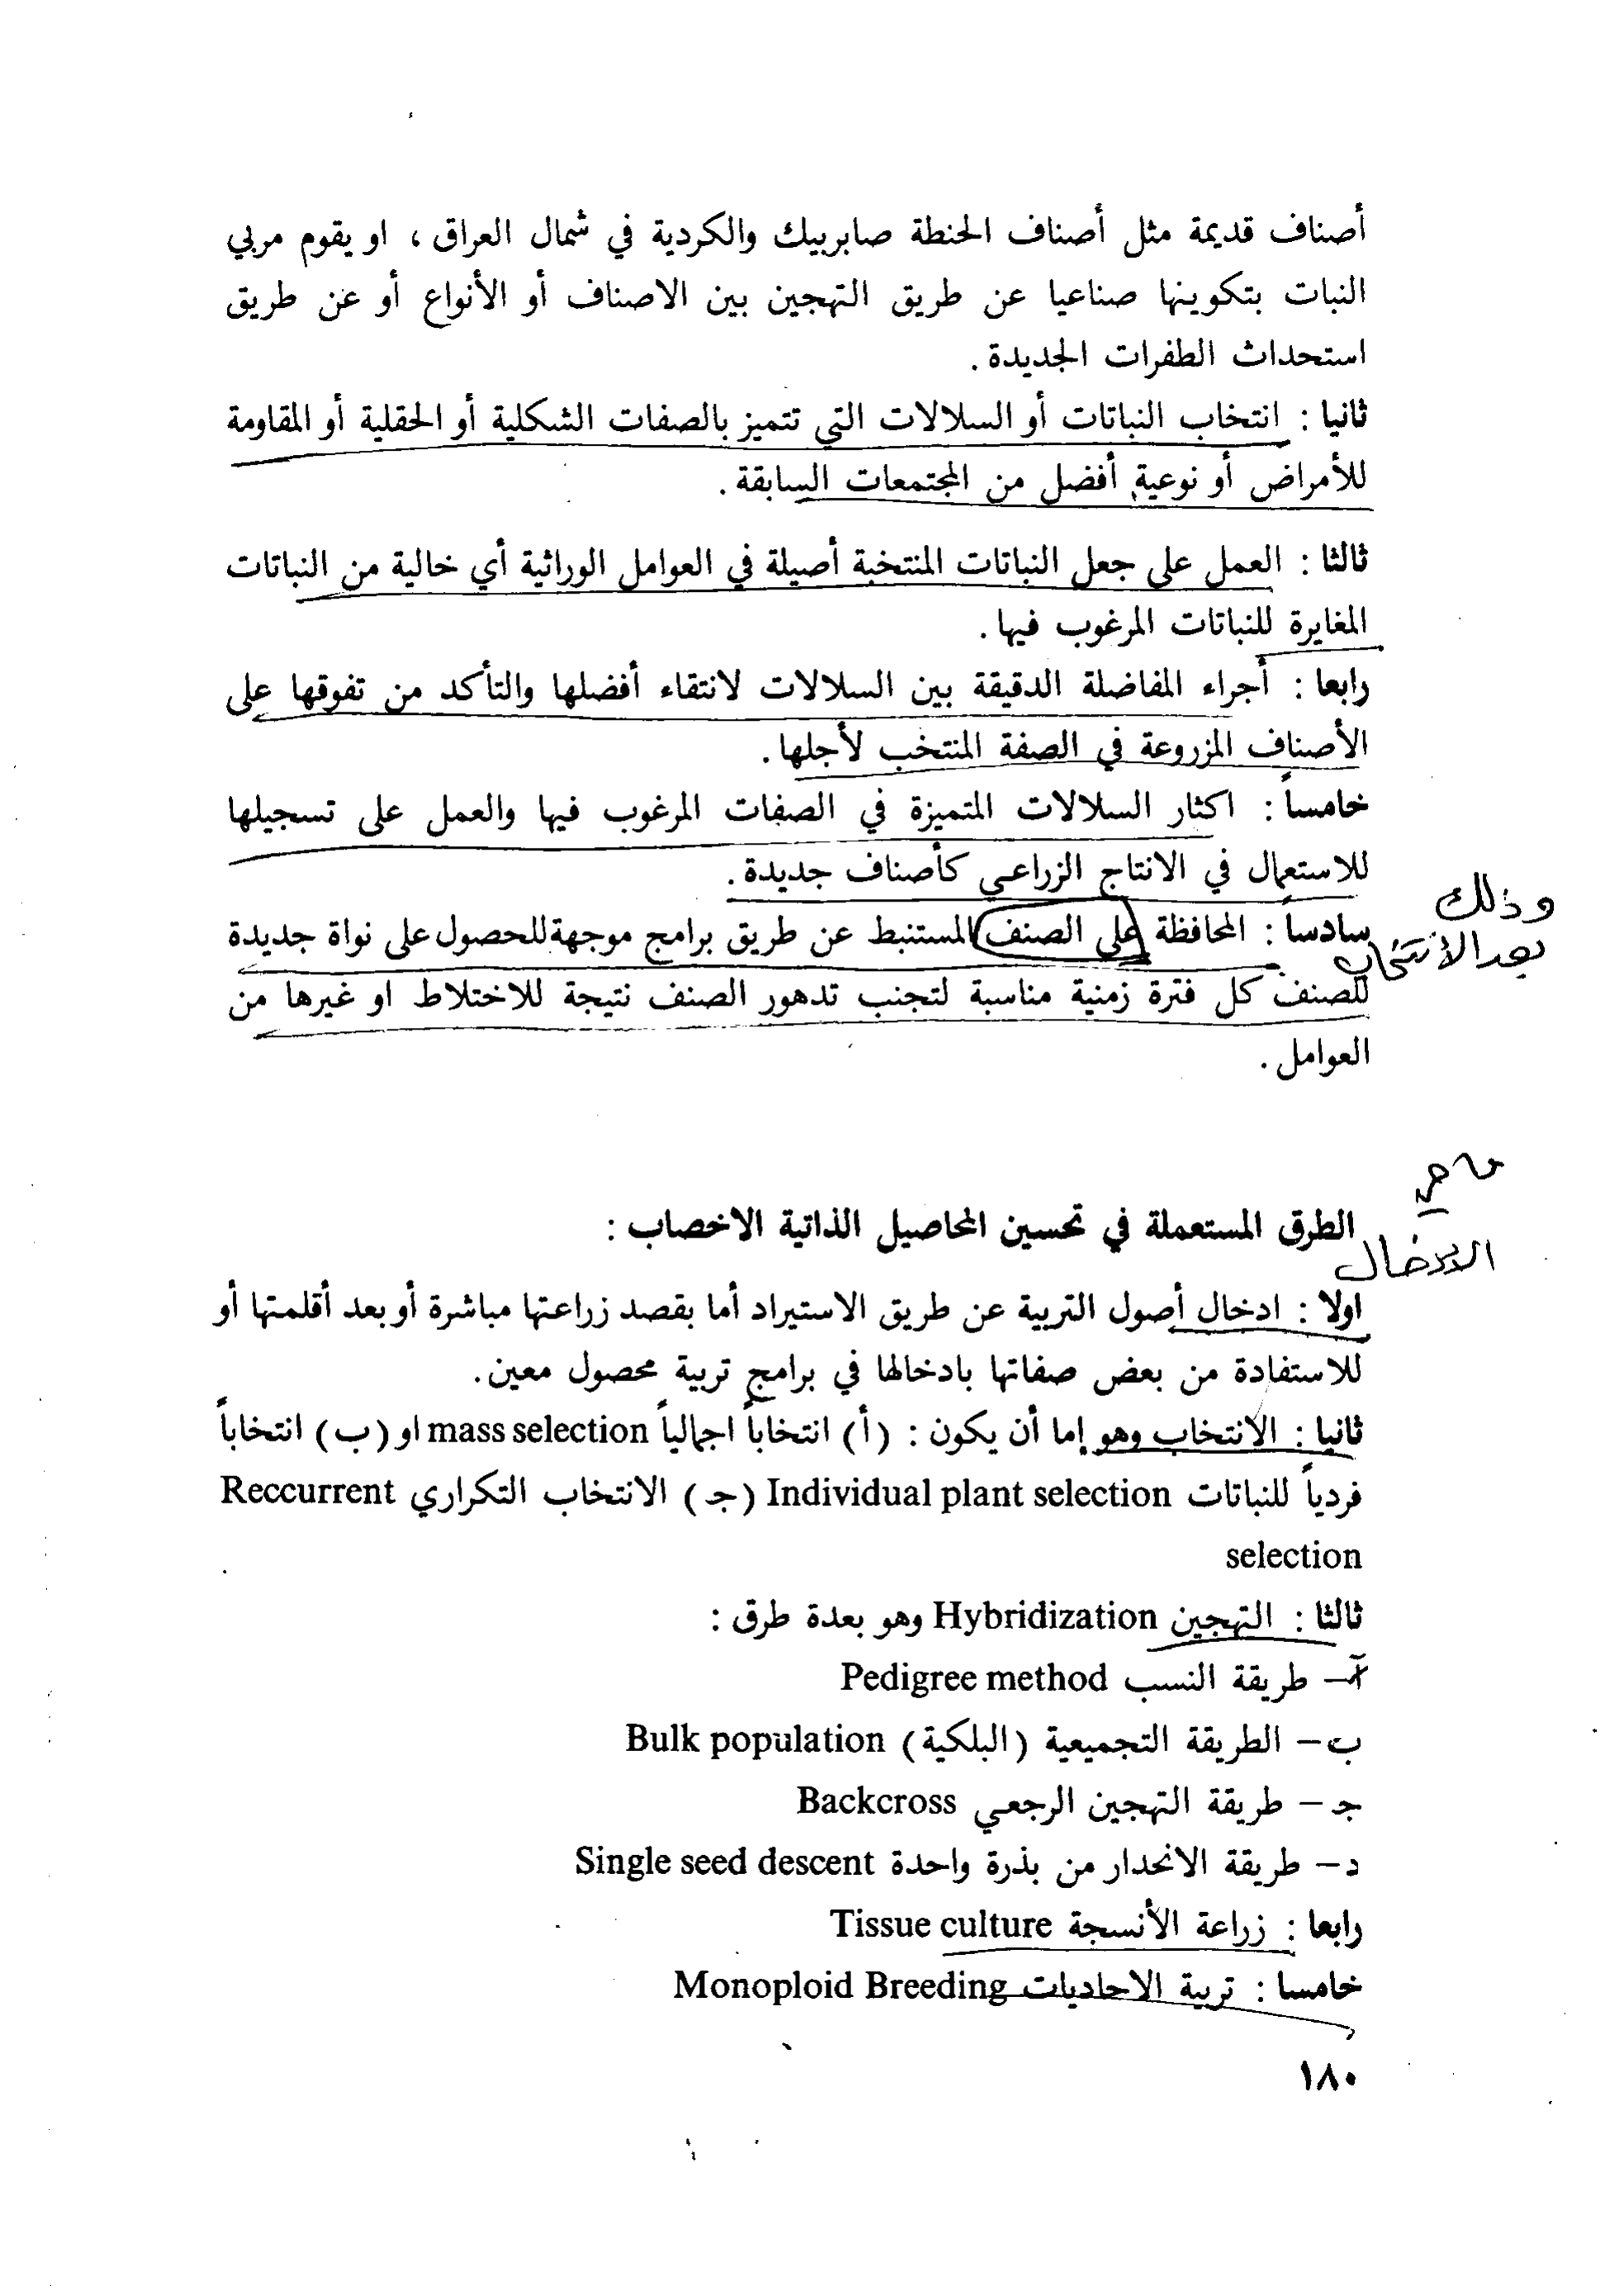 أصناف قديمة مثل أصناف الحنطة صابربيك والكردية في شمال العراق ، او يقوم مربي
النبات بتكوينها صناعيا عن طريق التهجين بين الاصناف أو الأنواع أو عن طريق
استحداث الطفرات الجديدة .
ثانيا : انتخاب النباتات أو السلالات التي تتميز بالصفات الشكلية أو الحقلية أو المقاومة
للأمراض أو نوعية أفضل من المجتمعات السابقة .
ثالثا : العمل على جعل النباتات المنتخبة أصيلة في العوامل الوراثية أي خالية من النباتات
المغايرة للنباتات المرغوب فيها .
رابعا : أجراء المفاضلة الدقيقة بين السلالات لانتقاء أفضلها والتأكد من تفوقها على
الأصناف المزروعة في الصفة المنتخب لأجلها .
خامساً : اكثار السلالات المتميزة في الصفات المرغوب فيها والعمل على تسجيلها
للاستعمال في الانتاج الزراعي كأصناف جديدة .
وذلك
سادساً : المحافظة على الصنف المستنبط عن طريق برامج موجهة للحصول على نواة جديدة
بعد الأنتخاب
للصنف كل فترة زمنية مناسبة لتجنب تدهور الصنف نتيجة للاختلاط او غيرها من
العوامل .
الطرق المستعملة في تحسين المحاصيل الذاتية الاخصاب :
الادخال
اولا : ادخال أصول التربية عن طريق الاستيراد أما بقصد زراعتها مباشرة أو بعد أقلمتها أو
للاستفادة من بعض صفاتها بادخالها في برامج تربية محصول معين .
ثانيا : الانتخاب وهو إما أن يكون : (أ) انتخاباً اجمالياً mass selection او (ب) انتخاباً
فردياً للنباتات Individual plant selection (جـ) الانتخاب التكراري Reccurrent
selection
ثالثا : التهجين Hybridization وهو بعدة طرق :
آ– طريقة النسب Pedigree method
ب – الطريقة التجميعية (البلكية) Bulk population
جـ – طريقة التهجين الرجعي Backcross
د – طريقة الانحدار من بذرة واحدة Single seed descent
رابعا : زراعة الأنسجة Tissue culture
خامسا : تربية الاحاديات Monoploid Breeding
١٨٠